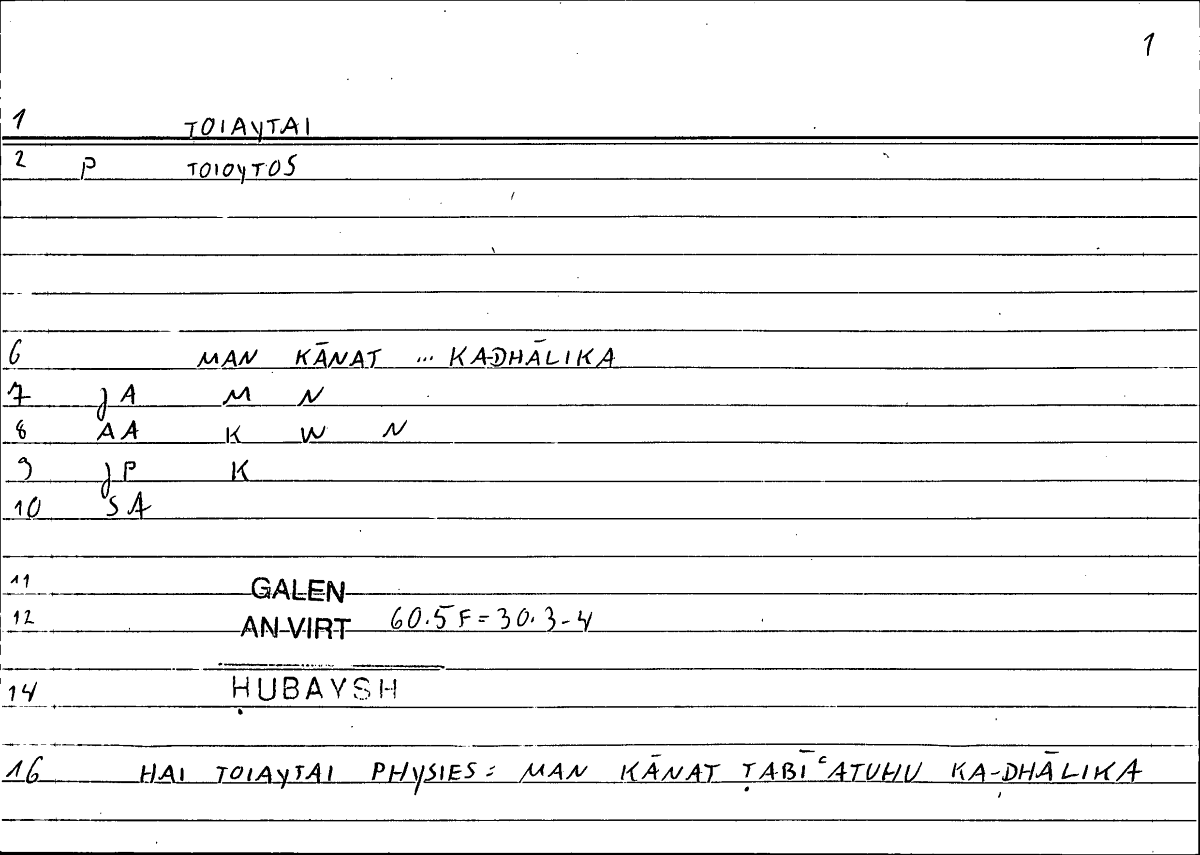 1
1 TOIAYTAI
2 P TOIOYTOS
6 MAN KĀNAT ... KA-DHĀLIKA
7 JA M N
8 AA K W N
9 JP K
10 SA
11 GALEN
12 AN VIRT 60.5 F = 30.3-4
14 ḤUBAYSH
16 HAI TOIAYTAI PHYSIES: MAN KĀNAT ṬABĪʿATUHU KA-DHĀLIKA